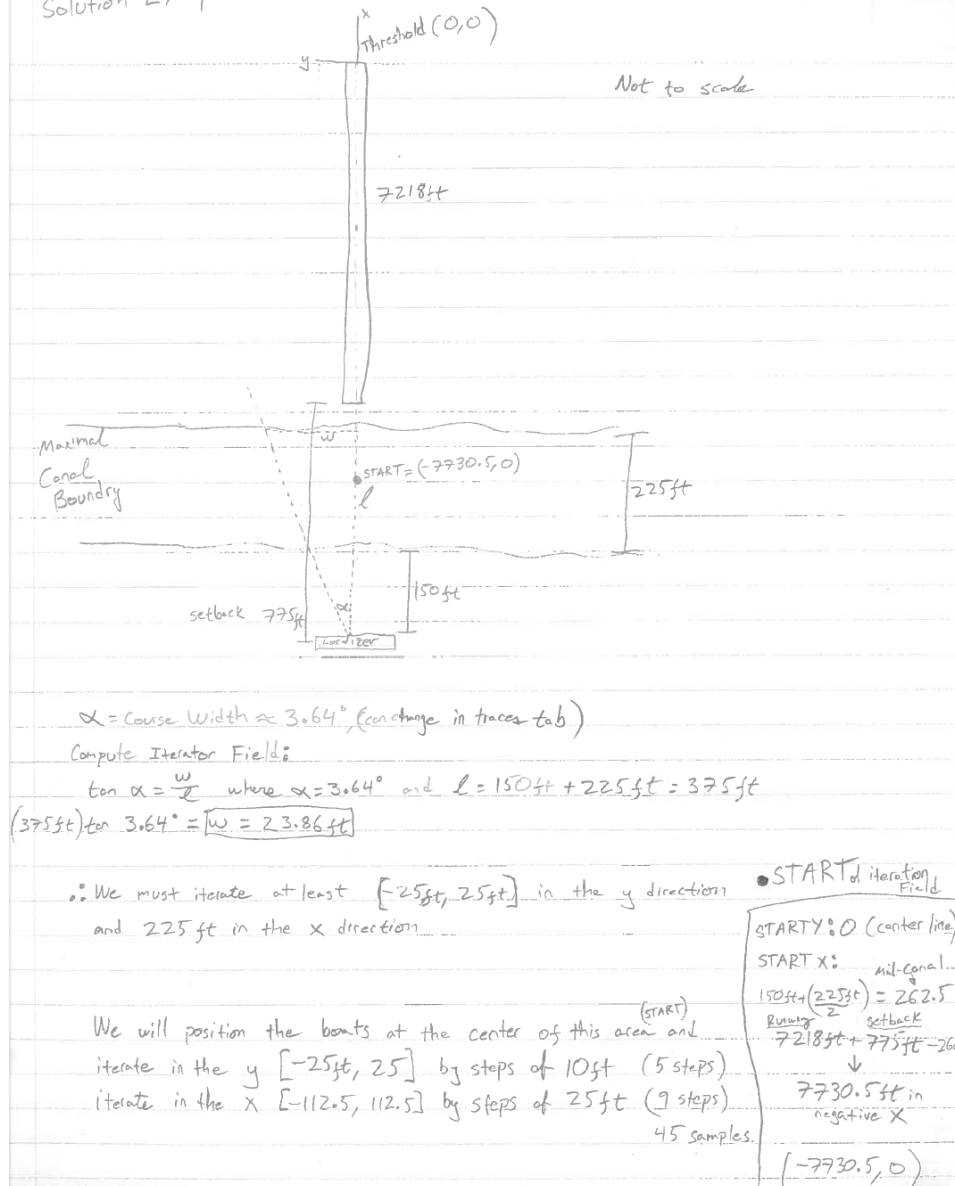 Solution
x
Threshold (0,0)
y
Not to scale
7218ft
Maximal
Canal
Boundry
w
START = (-7730.5, 0)
l
225ft
150ft
α
setback 775ft
Localizer
α = Couse Width ≈ 3.64°, (can change in traces tab)
Compute Iterator Field:
tan α = w/l where α = 3.64° and l = 150ft + 225ft = 375ft
(375ft) tan 3.64° = w = 23.86ft
∴ We must iterate at least [-25ft, 25ft] in the y direction
and 225 ft in the x direction
We will position the boats at the center of this area (START) and
iterate in the y [-25ft, 25] by steps of 10ft (5 steps)
iterate in the x [-112.5, 112.5] by steps of 25ft (9 steps)
45 samples.
• START of iteration
Field
STARTY: 0 (center line)
START X:
Mid-Canal
150ft + (225ft/2) = 262.5
Runway setback
7218ft + 775ft - 26
↓
7730.5 ft in
negative X
(-7730.5, 0)